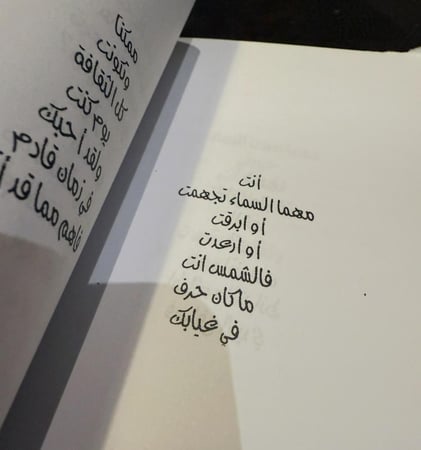 أنت
مهما السماء تجهمت
أو ابرقت
أو ارعدت
فالشمس انت
ماكان حرف
في غيابك
ممكنا
وتكونت
كل الثقافة
يوم كنت
ولقد أحبك
في زمان قادم
فأهم مما قد